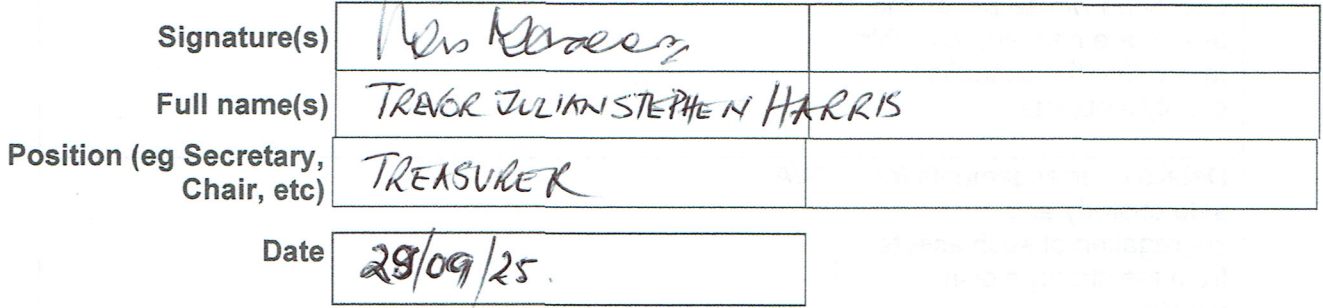 Signature(s)
Full name(s) TREVOR JULIAN STEPHEN HARRIS
Position (eg Secretary,
Chair, etc) TREASURER
Date /09/25.